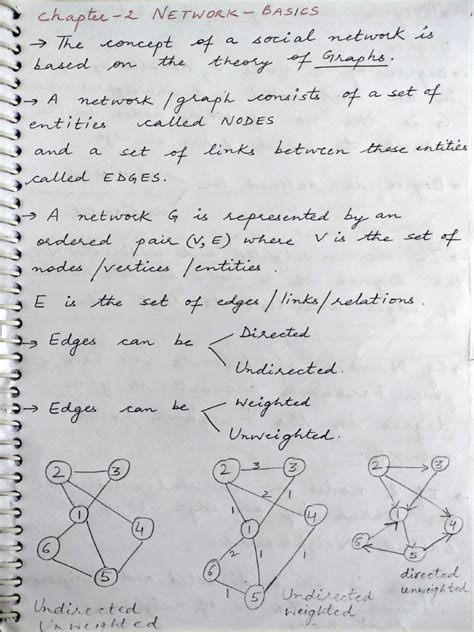 Chapter-2 NETWORK-BASICS
→ The concept of a social network is
based on the theory of Graphs.
→ A network/graph consists of a set of
entities called NODES
and a set of links between these entities
called EDGES.
→ A network G is represented by an
ordered pair (V, E) where V is the set of
nodes/vertices/entities.
E is the set of edges/links/relations.
→ Edges can be < Directed
Undirected.
→ Edges can be < Weighted
Unweighted.
2 3
1
4
6
5
Undirected
Unweighted
2 3 3
2 1
1
1 4
2 1 1
6
1 5
Undirected
weighted
2 3
1
4
6
5
directed
unweighted